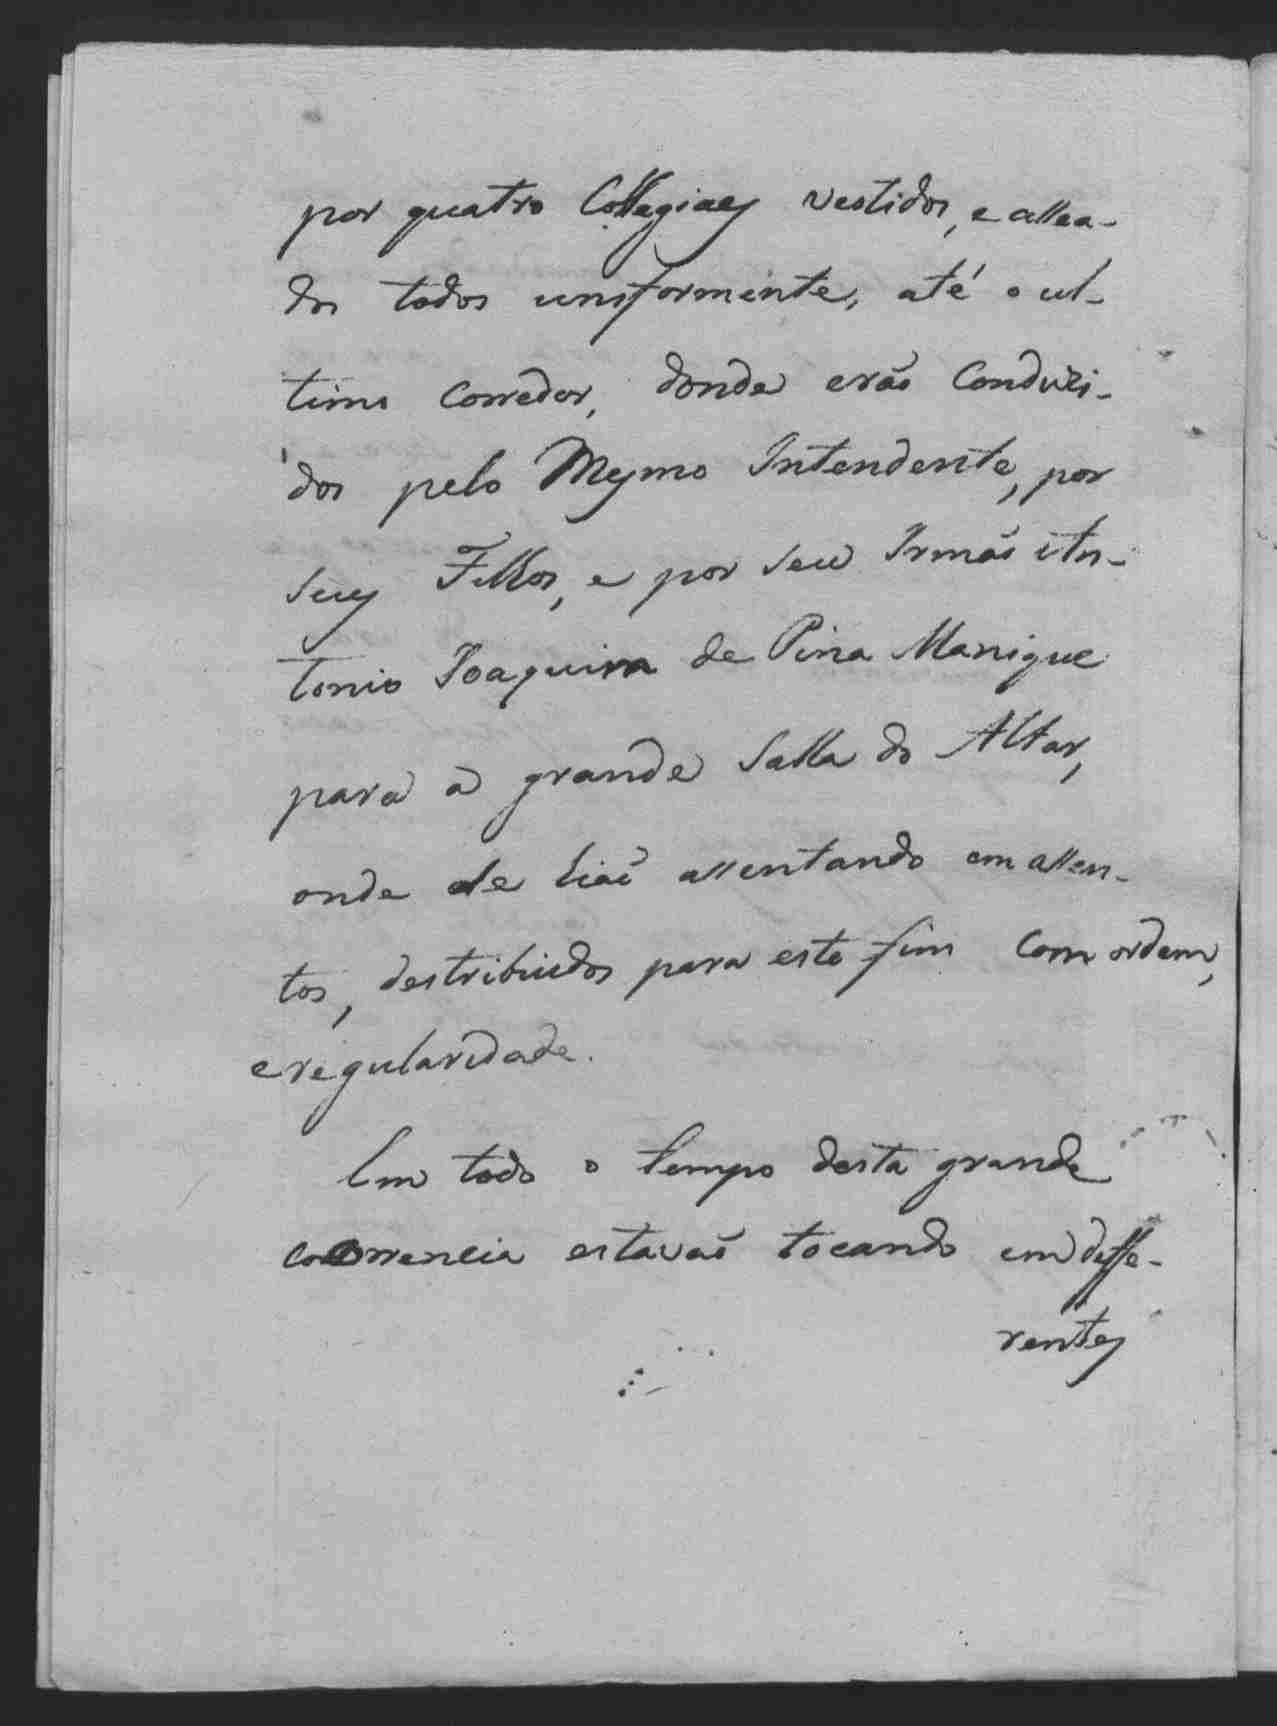 por quatro Collegiaes vestidos, e assea-
dos todos uniformente, até o ul-
timo Corredor, donde erão Conduzi-
dos pelo Mesmo Intendente, por
seus Filhos, e por seu Irmão An-
tonio Joaquim de Pina Manique
para a grande Salla do Altar,
onde se hiaõ assentando em assen-
tos, destribuidos para este fim Com ordem,
e regularidade.
Em todo o tempo desta grande
concorrencia estavaõ tocando em diffe-
rentes